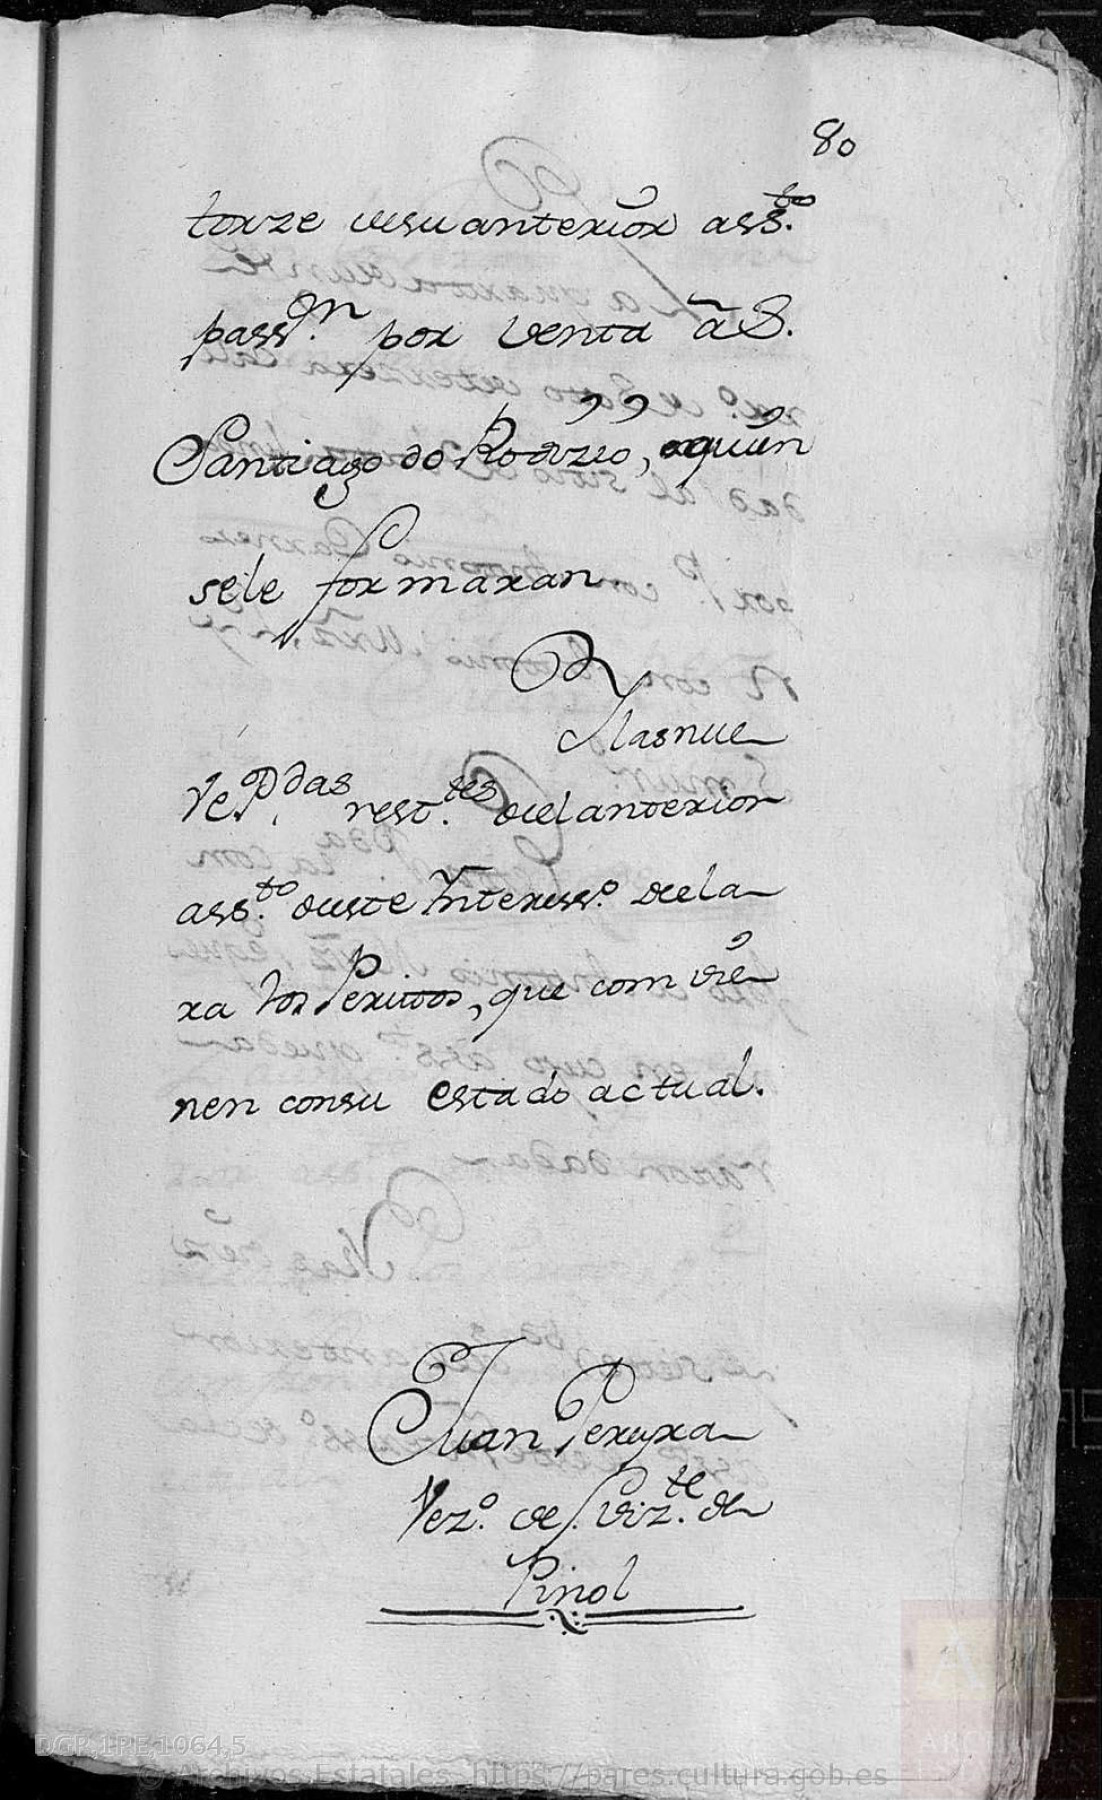 80
torze desu anterior ass.to
pass.on por venta â D.
Santiago do Rodrzio, aquien
sele formaran
Ô
Las nue
Ve P.das rest.tes del anterior
ass.to deste Interess.o decla
ra los Peritos, que com vie
nen consu estado actual.
Juan Pereyra
Vez.o de S. Viz.te de
Pinol
DGP,1PE,1064,5
© Archivos Estatales. https://pares.cultura.gob.es